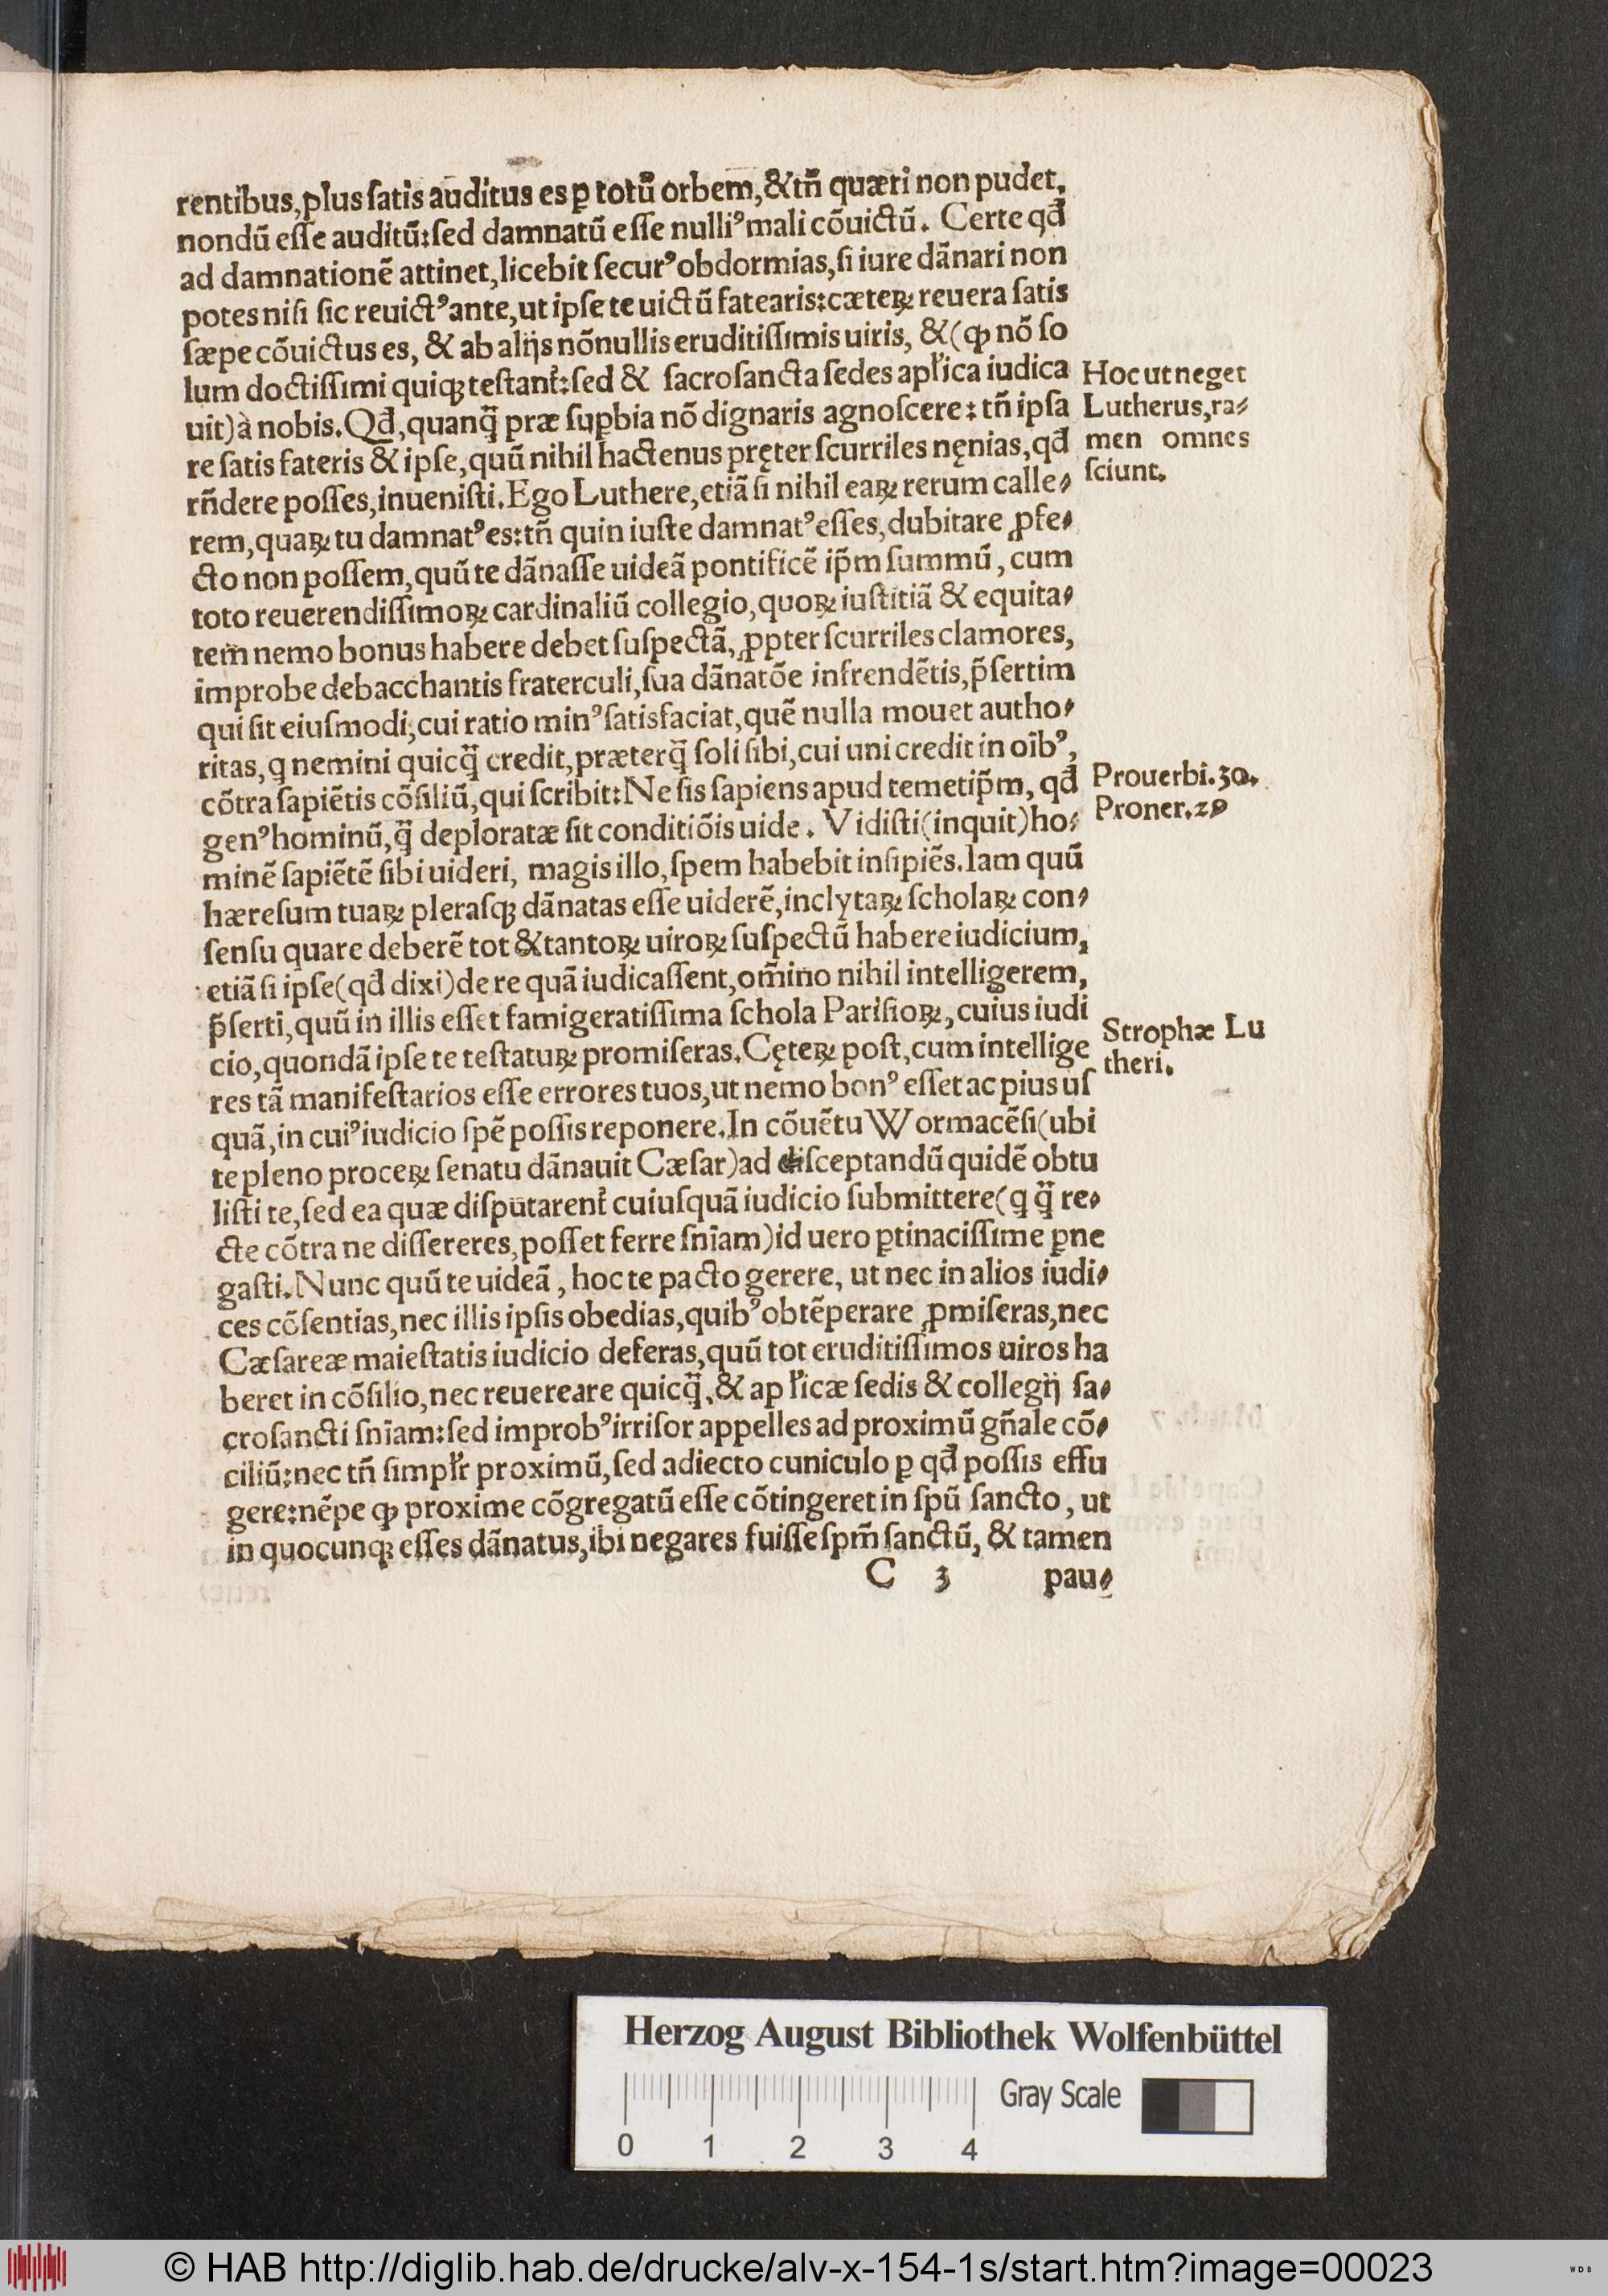 rentibus,plus ſatis auditus es ꝑ totū orbem,&tñ quæri non pudet,
nondū eſſe auditū:ſed damnatū eſſe nulliꝰ mali cōuictū. Certe qđ
ad damnationē attinet,licebit ſecurꝰ obdormias,ſi iure dānari non
potes niſi ſic reuictꝰ ante,ut ipſe te uictū fatearis:cæteꝝ reuera ſatis
ſæpe cōuictus es, & ab alijs nōnullis eruditiſſimis uiris, &(ꝙ nō ſo
lum doctiſſimi quiqꝫ teſtant̃:ſed & ſacroſancta ſedes apl̃ica iudica
uit)à nobis.Qđ,quanq̃ præ ſuꝑbia nō dignaris agnoſcere: tñ ipſa
re ſatis fateris & ipſe,quū nihil hactenus pręter ſcurriles nęnias,qđ
rñdere poſſes,inueniſti.Ego Luthere,etiā ſi nihil eaꝝ rerum calle⸗
rem,quaꝝ tu damnatꝰ es:tñ quin iuſte damnatꝰ eſſes,dubitare ꝓfe⸗
cto non poſſem,quū te dānaſſe uideā pontificē ip̄m ſummū, cum
toto reuerendiſſimoꝝ cardinaliū collegio,quoꝝ iuſtitiā & equita⸗
tem̄ nemo bonus habere debet ſuſpectā, ꝓpter ſcurriles clamores,
improbe debacchantis fraterculi,ſua dānatōe infrendētis,p̄ſertim
qui ſit eiuſmodi,cui ratio minꝰ ſatisfaciat,quē nulla mouet autho⸗
ritas,q nemini quicq̃ credit,præterq̃ ſoli ſibi,cui uni credit in oībꝰ,
cōtra ſapiētis cōſiliū,qui ſcribit:Ne ſis ſapiens apud temetip̄m, qđ
genꝰ hominū,q̃ deploratæ ſit conditiōis uide. Vidiſti(inquit)ho⸗
minē ſapiētē ſibi uideri, magis illo,ſpem habebit inſipiēs.Iam quū
hæreſum tuaꝝ pleraſqꝫ dānatas eſſe uiderē,inclytaꝝ ſcholaꝝ con⸗
ſenſu quare deberē tot &tantoꝝ uiroꝝ ſuſpectū habere iudicium,
etiā ſi ipſe(qđ dixi)de re quā iudicaſſent,om̄ino nihil intelligerem,
p̄ſerti,quū in illis eſſet famigeratiſſima ſchola Pariſioꝝ, cuius iudi
cio,quondā ipſe te teſtatuꝝ promiſeras.Cęteꝝ poſt,cum intellige
res tā manifeſtarios eſſe errores tuos,ut nemo bonꝰ eſſet ac pius uſ
quā,in cuiꝰ iudicio ſpē poſſis reponere.In cōuētu Wormacēſi(ubi
te pleno proceꝝ ſenatu dānauit Cæſar)ad diſceptandū quidē obtu
liſti te,ſed ea quæ diſputarent̃ cuiuſquā iudicio ſubmittere(q q̃ re⸗
cte cōtra ne diſſereres,poſſet ferre ſniam)id uero ꝑtinaciſſime ꝑne
gaſti.Nunc quū te uideā, hoc te pacto gerere, ut nec in alios iudi⸗
ces cōſentias,nec illis ipſis obedias,quibꝰ obtēperare ꝓmiſeras,nec
Cæſareæ maieſtatis iudicio deferas,quū tot eruditiſſimos uiros ha
beret in cōſilio,nec reuereare quicq̃,& apl̃icæ ſedis & collegij ſa⸗
croſancti ſniam:ſed improbꝰ irriſor appelles ad proximū gñale cō⸗
ciliū:nec tñ ſimpl̃r proximū,ſed adiecto cuniculo ꝑ qđ poſſis effu
gere:nēpe ꝙ proxime cōgregatū eſſe cōtingeret in ſpū ſancto, ut
in quocunqꝫ eſſes dānatus,ibi negares fuiſſe ſpm̄ ſanctū, & tamen
C 3 pau⸗
Hoc ut neget
Lutherus,ta⸗
men omnes
ſciunt.
Prouerbi.30.
Proner.29
Strophæ Lu
theri.
Herzog August Bibliothek Wolfenbüttel
Gray Scale
0 1 2 3 4
© HAB http://diglib.hab.de/drucke/alv-x-154-1s/start.htm?image=00023
WDB